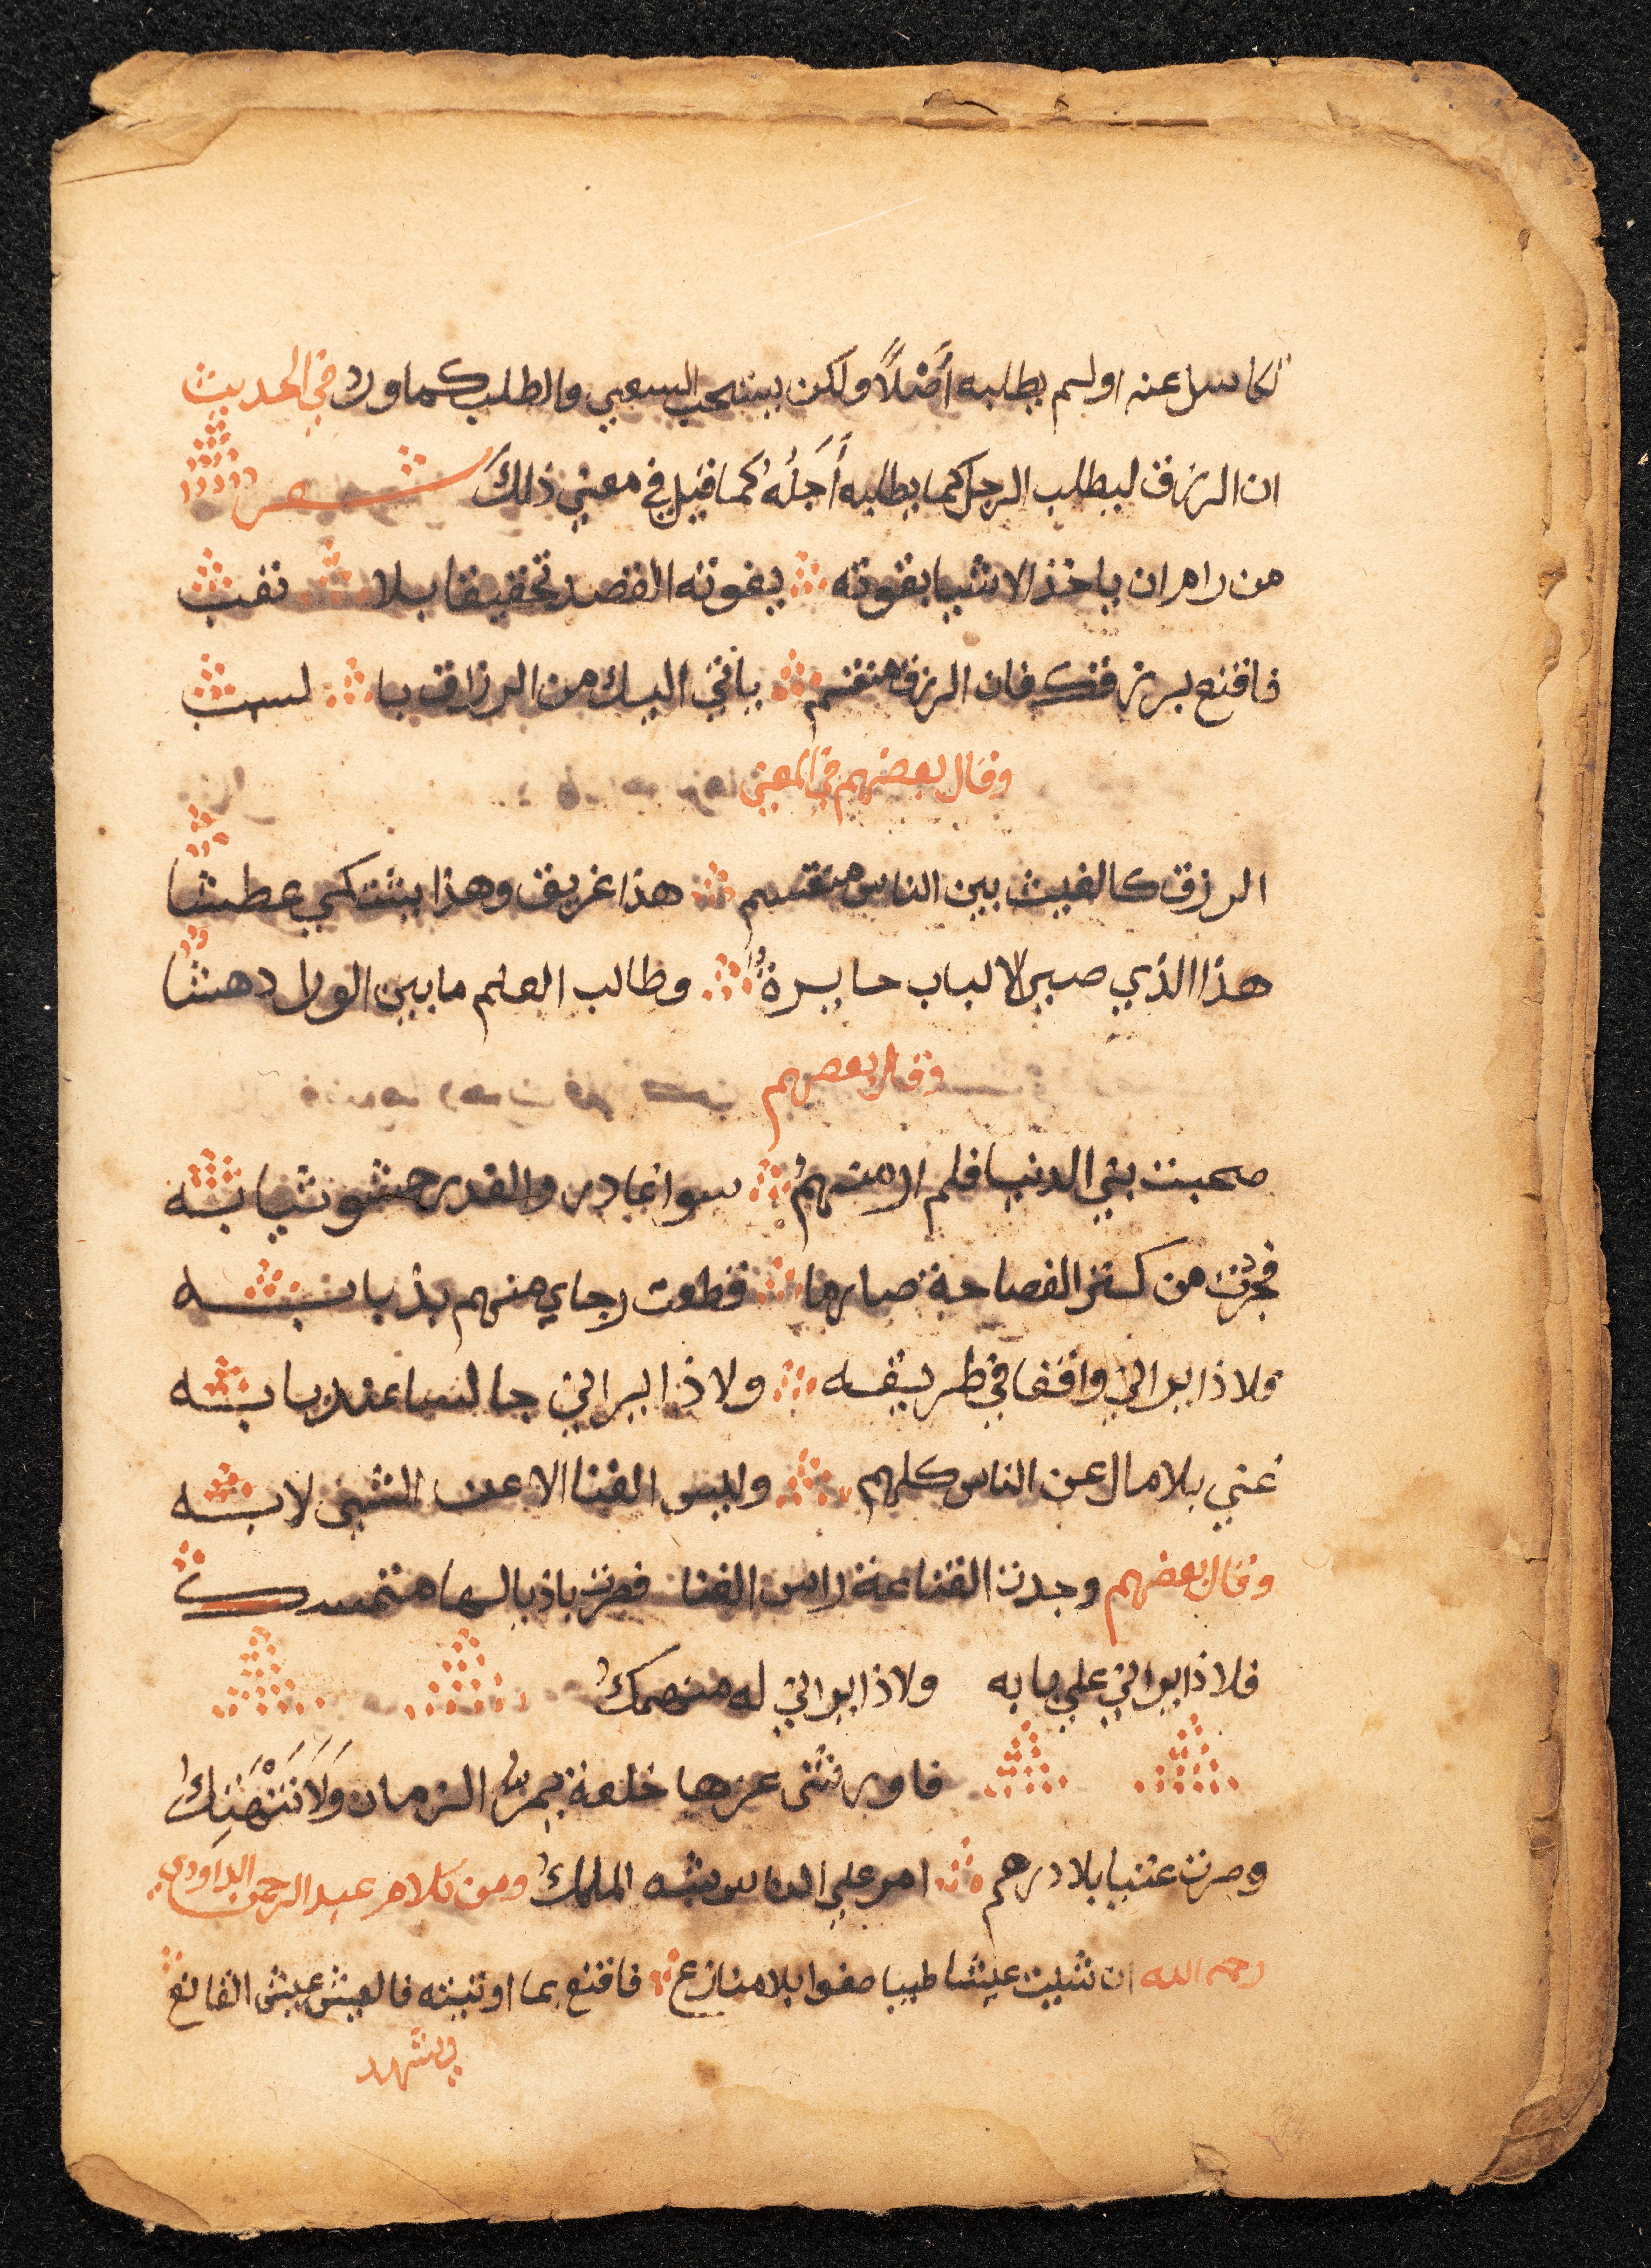 تكاسل عنه اولم يطلبه أصْلاً ولكن يستحب السعي والطلب كماورد في الحديث
ان الرزق ليطلب الرجل كما يطلبه أَجَلُهُ كما قيل في معني ذلكَ شعر
من رام ان ياخذ الاشيا بقوته يفوته القصد تحقيقا بلا تعب
فاقنع برزقك فان الرزق منقسم ياتي اليك من الرزاق با لسبب
وقال بعضهم في المعني
الرزق كالغيث بين الناس منقسم هذا غريق وهذا يشتكي عطشا
هذا الذي صير الالباب حايرةً وطالب العلم ما بين الورا دهشا
وقال بعضهم
صحبت بني الدنيا فلم ار منهمُ سوا غادر والغدر حشو ثيابه
فجردت من كنز الفصاحة صارما قطعت رجاي منهم بذبابه
فلا ذا يراني واقفا في طريقه ولا ذا يراني جالسا عند بابه
غني بلا مال عن الناس كلهم وليس الغنا الا عن الشيى لا به
وقال بعضهم وجدت القناعة راس الغنا فصرت باذيالها متمسك
فلا ذا يراني علي بابه ولا ذا يراني له منهمك
فاورثتنى عزها خلعة يمرُّ الزمان وَلَا تَنْهَتِكُ
وصرت غنيا بلا درهم امر علي الناس شبه الملك ومن كلام عبد الرحمن الداودي
رحمه الله ان شيت عيشا طيبا صفوا بلا منازع فاقنع بما اوتيته فالعيش عيش القانع
يشهد